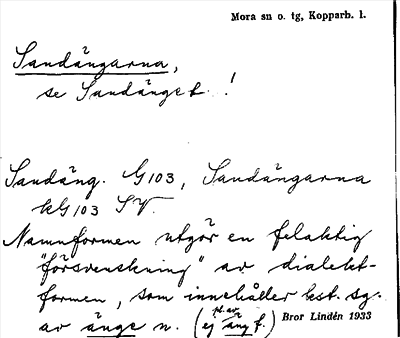 Mora sn o. tg, Kopparb. l.
Sandängarna,
se Sandänget. !
Sandäng. G103, Sandängarna
kG103 SV.
Namnformen utgör en felaktig
"försvenskning" av dialekt-
formen, som innehåller best. sg.
av änge n. (ej äng f.)
pl. av
Bror Lindén 1933